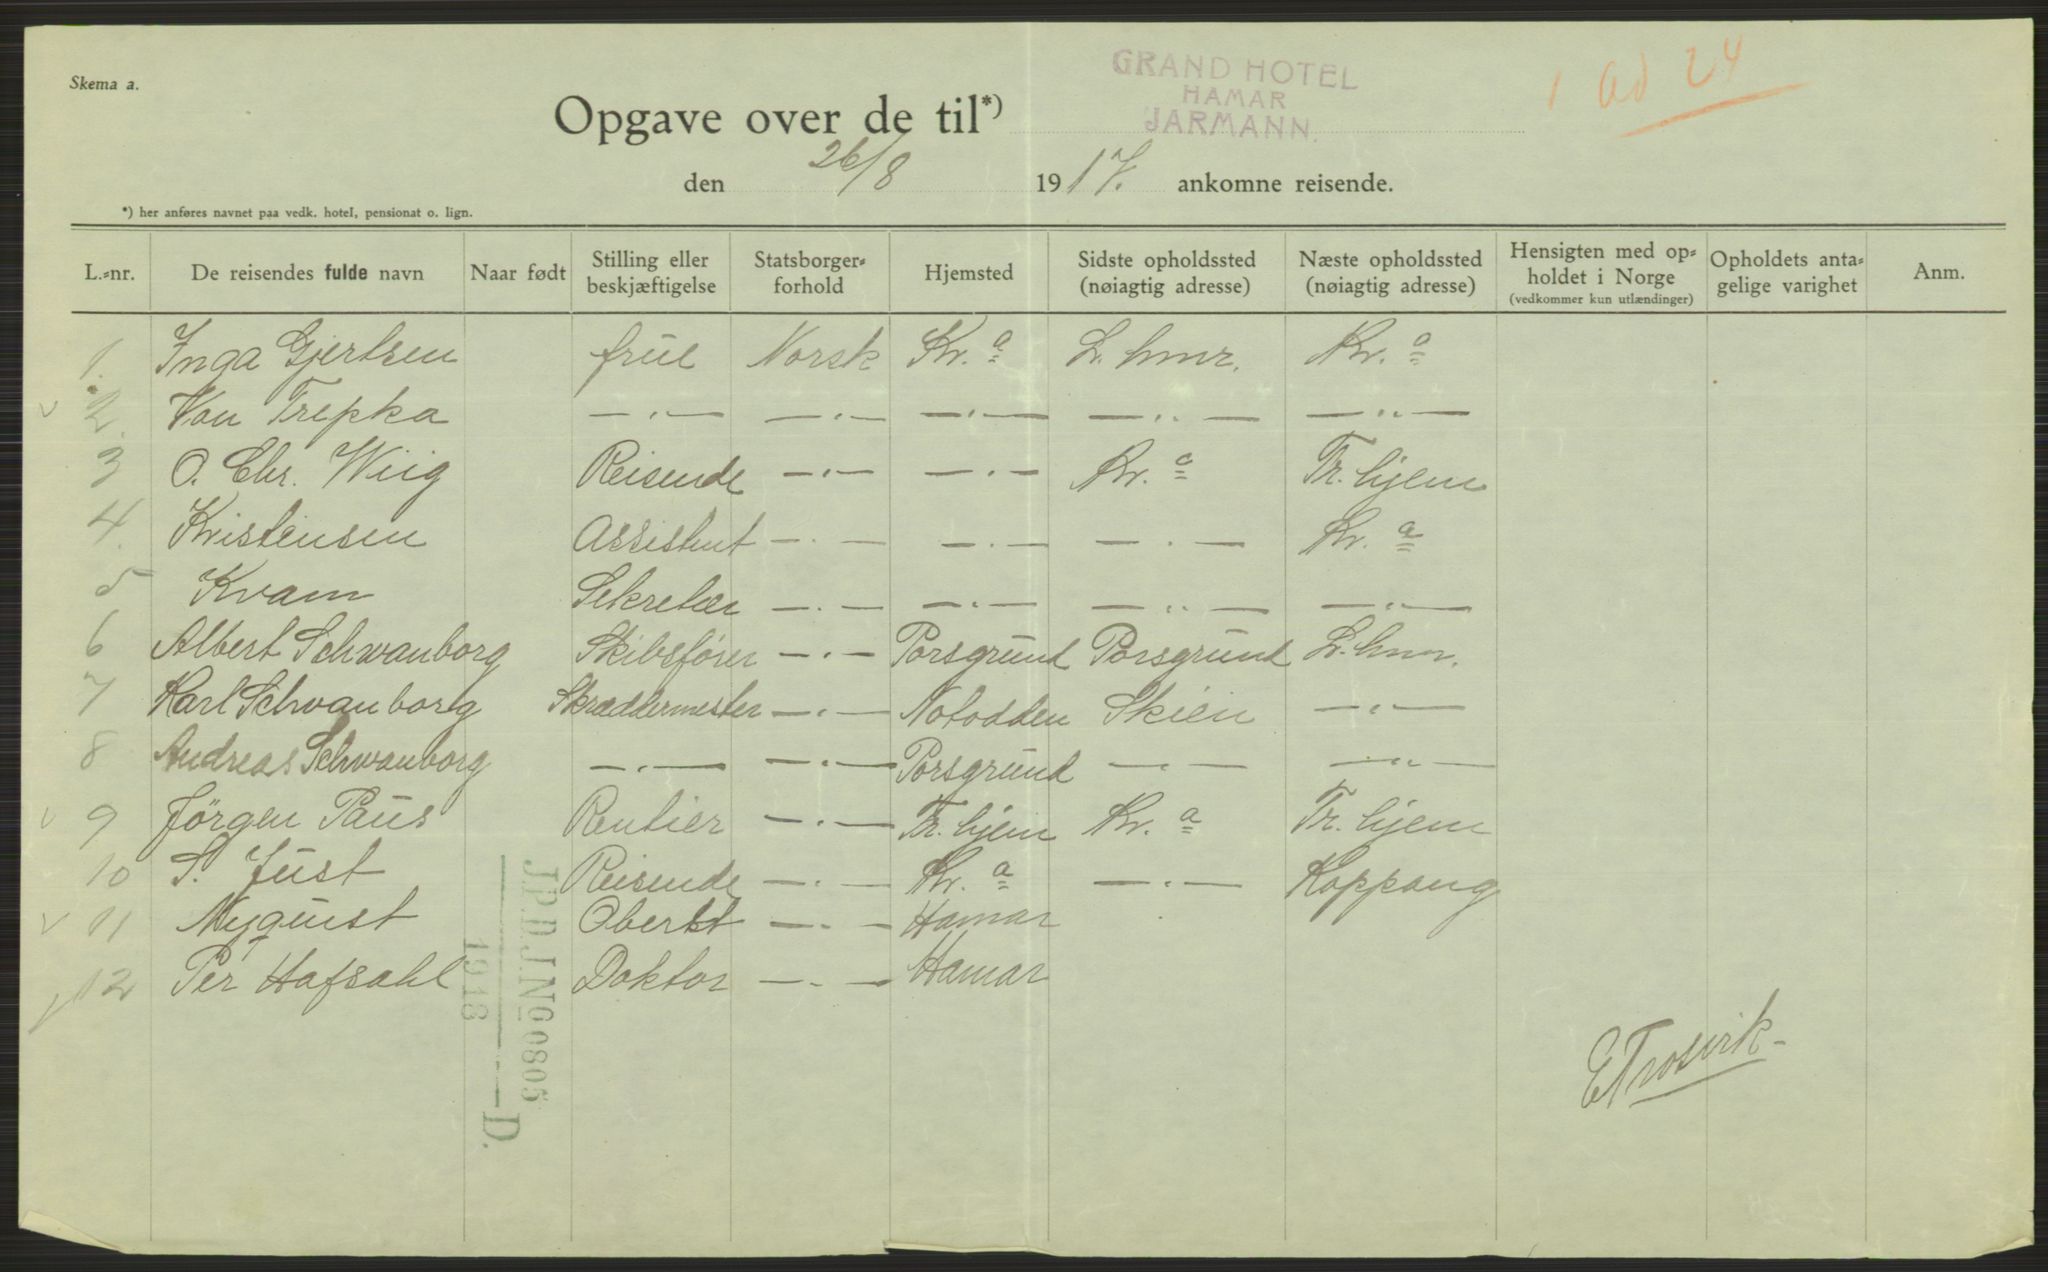 Skema a.
GRAND HOTEL
HAMAR
JARMANN.
1 ad 24
Opgave over de til*)
den 26/8 1917. ankomne reisende.
*) her anføres navnet paa vedk. hotel, pensionat o. lign.
L.=nr. De reisendes fulde navn Naar født Stilling eller beskjæftigelse Statsborger=forhold Hjemsted Sidste opholdssted (nøiagtig adresse) Næste opholdssted (nøiagtig adresse) Hensigten med op=holdet i Norge (vedkommer kun utlændinger) Opholdets anta=gelige varighet Anm.
1. Inga Gjertsen frue Norsk Kr. a L. hmr. Kr. a
2. Von Trepka —"— —"— —"— —"— —"—
3 O. Chr. Wiig Reisende —"— —"— Kr. a Tr. hjem
4. Kristensen Assistent —"— —"— —"— Kr. a
5 Kvam Sekretær —"— —"— —"— —"—
6 Albert Schwanborg Skibsfører —"— Porsgrund Porsgrund L. hmr.
7 Karl Schwanborg Skræddermester —"— Notodden Skien —"—
8 Andreas Schwanborg —"— —"— Porsgrund —"— —"—
9 Jörgen Paus Rentier —"— Tr. hjem Kr. a Tr. hjem
10 S. Just Reisende —"— Kr. a —"— Koppang
11 Nyquist Oberst —"— Hamar
12 Per Hafsahl Doktor —"— Hamar
J.P.D.J.No 0805
1918 D.
E Trosvik